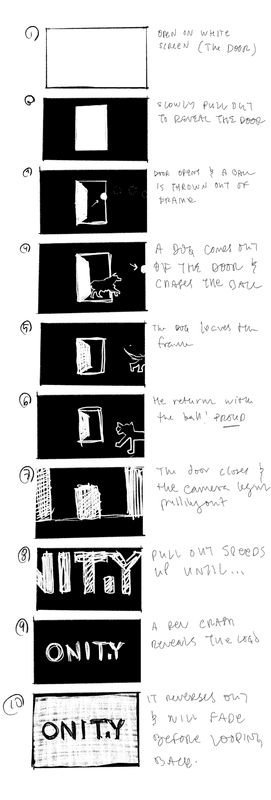 1
OPEN ON WHITE
SCREEN (THE DOOR)
2
SLOWLY PULL OUT
TO REVEAL THE DOOR
3
DOOR OPENS & A BALL
IS THROWN OUT OF
FRAME
4
A DOG COMES OUT
OF THE DOOR &
CHASES THE BALL
5
The DOG leaves the
frame
6
He returns with
the ball! PROUD
7
The door closes &
the camera begins
pulling out
8
NITY
PULL OUT SPEEDS
UP UNTIL...
9
ONITY
A REVEALS THE LOGO
10
ONITY
IT REVERSES OUT
& WILL FADE
BEFORE LOOPING
BACK.